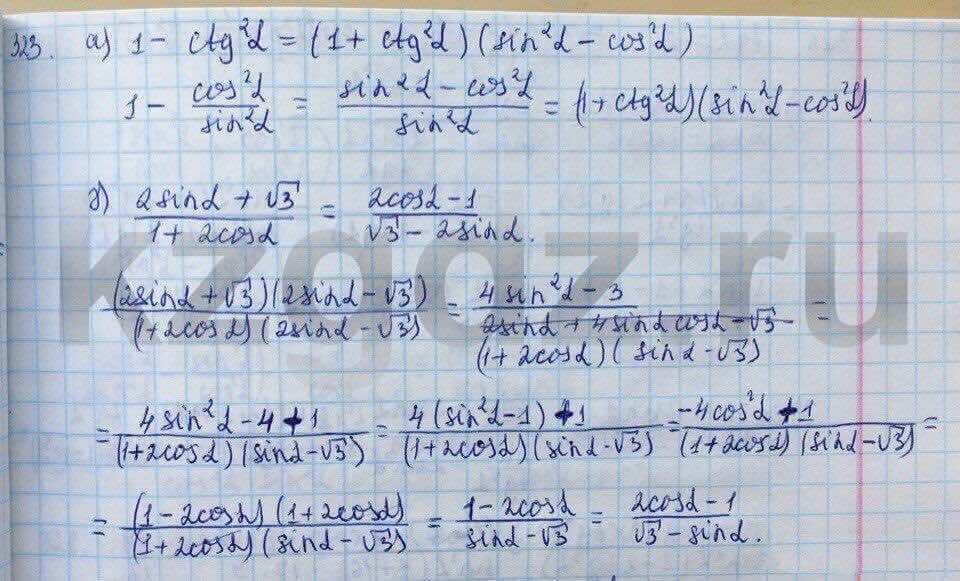 323. а) 1 - ctg²α = (1 + ctg²α)(sin²α - cos²α)
1 - cos²α/sin²α = (sin²α - cos²α)/sin²α = (1 + ctg²α)(sin²α - cos²α).
б) (2sinα + √3)/(1 + 2cosα) = (2cosα - 1)/(√3 - 2sinα).
((2sinα + √3)(2sinα - √3))/((1 + 2cosα)(2sinα - √3)) = (4sin²α - 3)/((1 + 2cosα)(sinα - √3)) =
= (4sin²α - 4 + 1)/((1 + 2cosα)(sinα - √3)) = (4(sin²α - 1) + 1)/((1 + 2cosα)(sinα - √3)) = (-4cos²α + 1)/((1 + 2cosα)(sinα - √3)) =
= ((1 - 2cosα)(1 + 2cosα))/((1 + 2cosα)(sinα - √3)) = (1 - 2cosα)/(sinα - √3) = (2cosα - 1)/(√3 - sinα).
kzgdz.ru